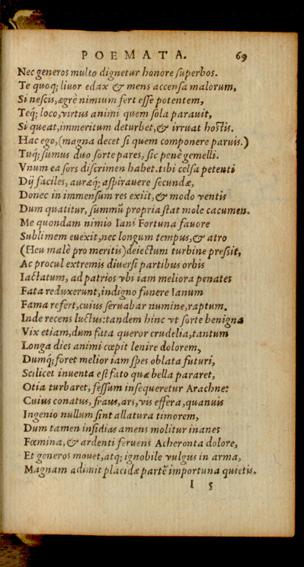 POEMATA. 69
Nec generos multo dignetur honore superbos.
Te quoq; liuor edax & mens accensa malorum,
Si nescis, ægrè nimium fert esse potentem,
Teq; loco, virtus animi quem sola parauit,
Si queat, immeritum deturbet, & irruat hostis.
Hac ego, (magna decet si quem componere paruis.)
Tuq; sumus duo sorte pares, sic penè gemelli.
Vnum ea sors discrimen habet. tibi celsa petenti
Dij faciles, auræq; aspirauere secundæ,
Donec in immensum res exijt, & modo ventis
Dum quatitur, summũ propria stat mole cacumen.
Me quondam nimio Iani Fortuna fauore
Sublimem euexit, nec longum tempus, & atro
(Heu malè pro meritis) deiectum turbine pressit,
Ac procul extremis diuersi partibus orbis
Iactatum, ad patrios vbi iam meliora penates
Fata reduxerunt, indigno funere Ianum
Fama refert, cuius seruabar numine, raptum.
Inde recens luctus: tandem hinc vt sorte benigna
Vix etiam, dum fata queror crudelia, tantum
Longa dies animi cœpit lenire dolorem,
Dumq; foret melior iam spes oblata futuri,
Scilicet inuenta est fato quæ bella pararet,
Otia turbaret, fessum insequeretur Arachne:
Cuius conatus, fraus, ars, vis effera, quamuis
Ingenio nullum sint allatura timorem,
Dum tamen insidias amens molitur inanes
Fœmina, & ardenti feruens Acheronta dolore,
Et generos mouet, atq; ignobile vulgus in arma,
Magnam adimit placidæ partẽ importuna quietis.
I 5